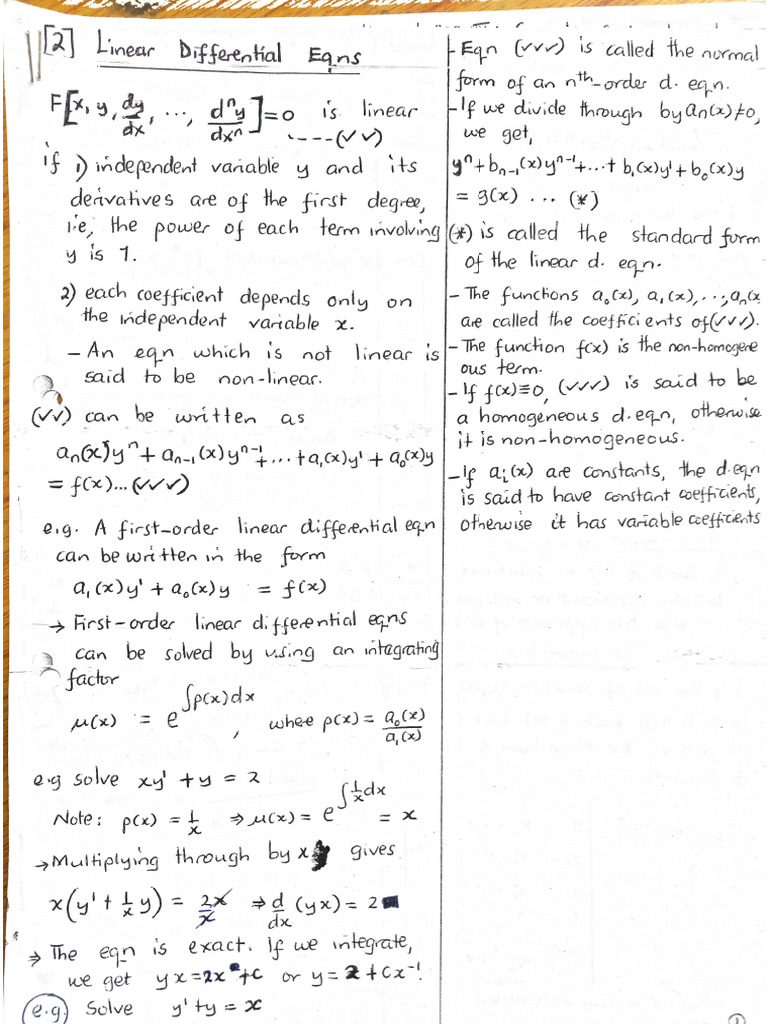 [2] Linear Differential Eqns
F[x, y, dy/dx, ..., dⁿy/dxⁿ] = 0 is linear
----(✓✓)
if 1) independent variable y and its
derivatives are of the first degree,
i.e, the power of each term involving
y is 1.
2) each coefficient depends only on
the independent variable x.
- An eqn which is not linear is
said to be non-linear.
(✓✓) can be written as
aₙ(x)yⁿ + aₙ₋₁(x)yⁿ⁻¹ + ... + a₁(x)y' + a₀(x)y
= f(x)...(✓✓✓)
e.g. A first-order linear differential eqn
can be written in the form
a₁(x)y' + a₀(x)y = f(x)
→ First-order linear differential eqns
can be solved by using an integrating
factor
μ(x) = e^∫p(x)dx, where p(x) = a₀(x)/a₁(x)
e.g solve xy' + y = 2
Note: p(x) = 1/x ⇒ μ(x) = e^∫1/x dx = x
→ Multiplying through by x gives
x(y' + 1/x y) = 2x/x ⇒ d/dx (yx) = 2
⇒ The eqn is exact. If we integrate,
we get yx = 2x + c or y = 2 + cx⁻¹.
(e.g) Solve y' + y = x
- Eqn (✓✓✓) is called the normal
form of an nᵗʰ-order d. eqn.
- If we divide through by aₙ(x) ≠ 0,
we get,
yⁿ + bₙ₋₁(x)yⁿ⁻¹ + ... + b₁(x)y' + b₀(x)y
= g(x) ... (*)
(*) is called the standard form
of the linear d. eqn.
- The functions a₀(x), a₁(x), ..., aₙ(x
are called the coefficients of (✓✓✓).
- The function f(x) is the non-homogene
ous term.
- If f(x) ≡ 0, (✓✓✓) is said to be
a homogeneous d.eqn, otherwise
it is non-homogeneous.
- If aᵢ(x) are constants, the d.eqn
is said to have constant coefficients,
otherwise it has variable coefficients